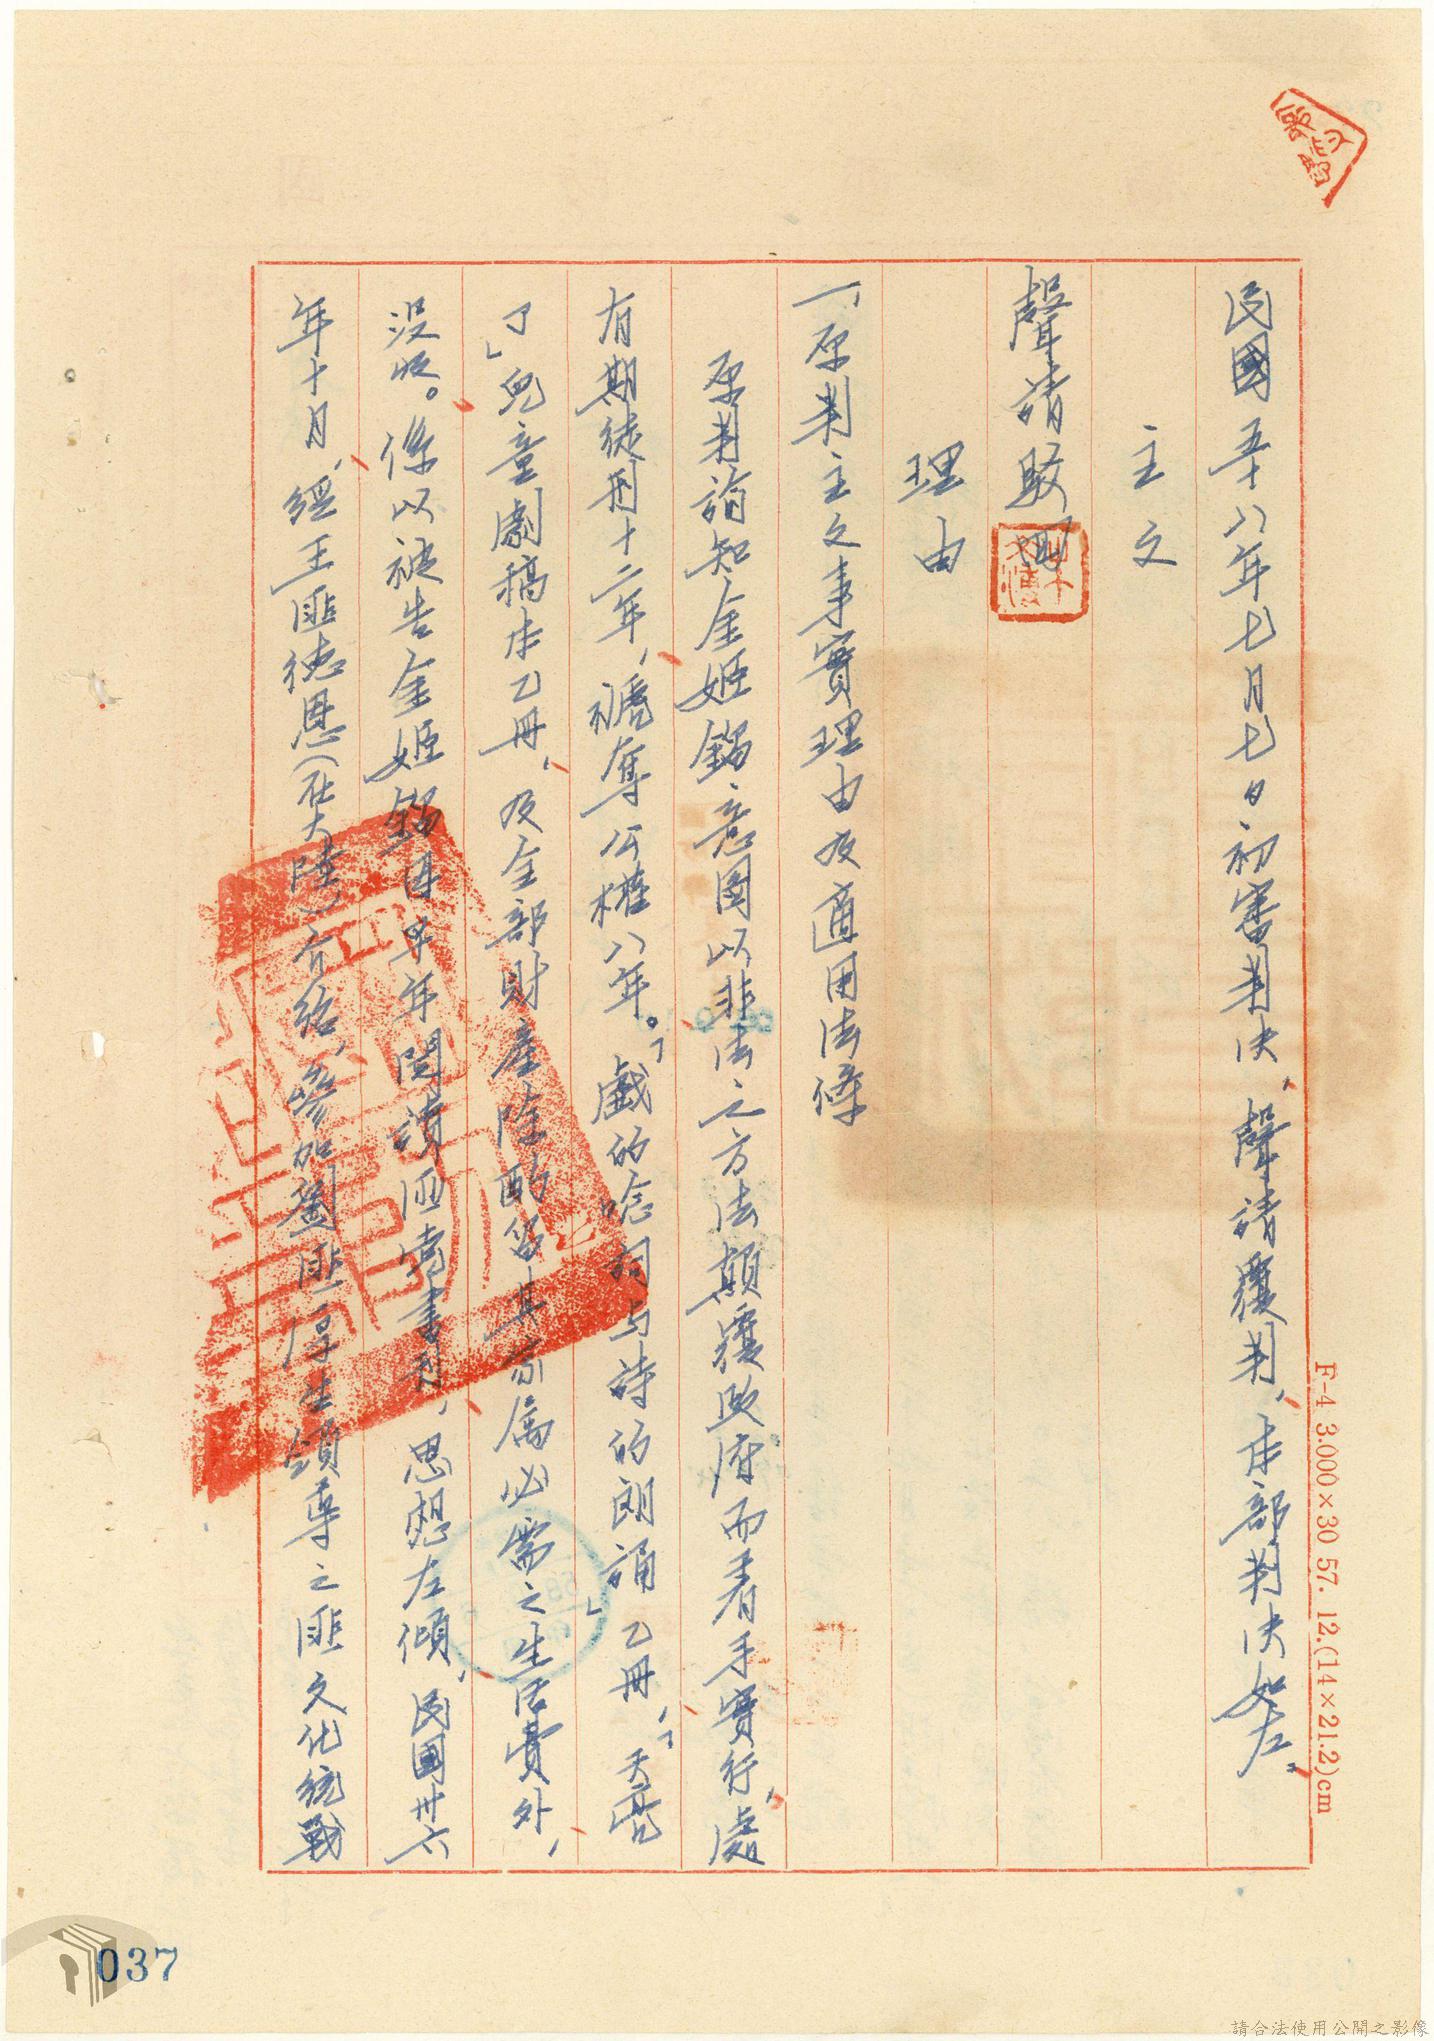 民國五十八年七月七日初審判決，聲請覆判，本部判決如左。
主文
聲請駁回
理由
一、原判主文事實理由及適用法條
原判諭知金姬鎦意圖以非法之方法顛覆政府而着手實行，處
有期徒刑十二年，褫奪公權八年。「戲的唸詞与詩的朗誦」乙冊，「天亮
了」兒童劇稿本乙冊，及全部財產除酌留其家属必需之生活費外，
沒收。係以被告金姬鎦因早年閱讀匪党書刊，思想左傾，民國卅六
年十月，經王匪德恩（在大陸）介紹，參加劉匪厚生領導之匪文化統戰
F-4 3.000×30 57. 12.(14×21.2)cm
037
請合法使用公開之影像